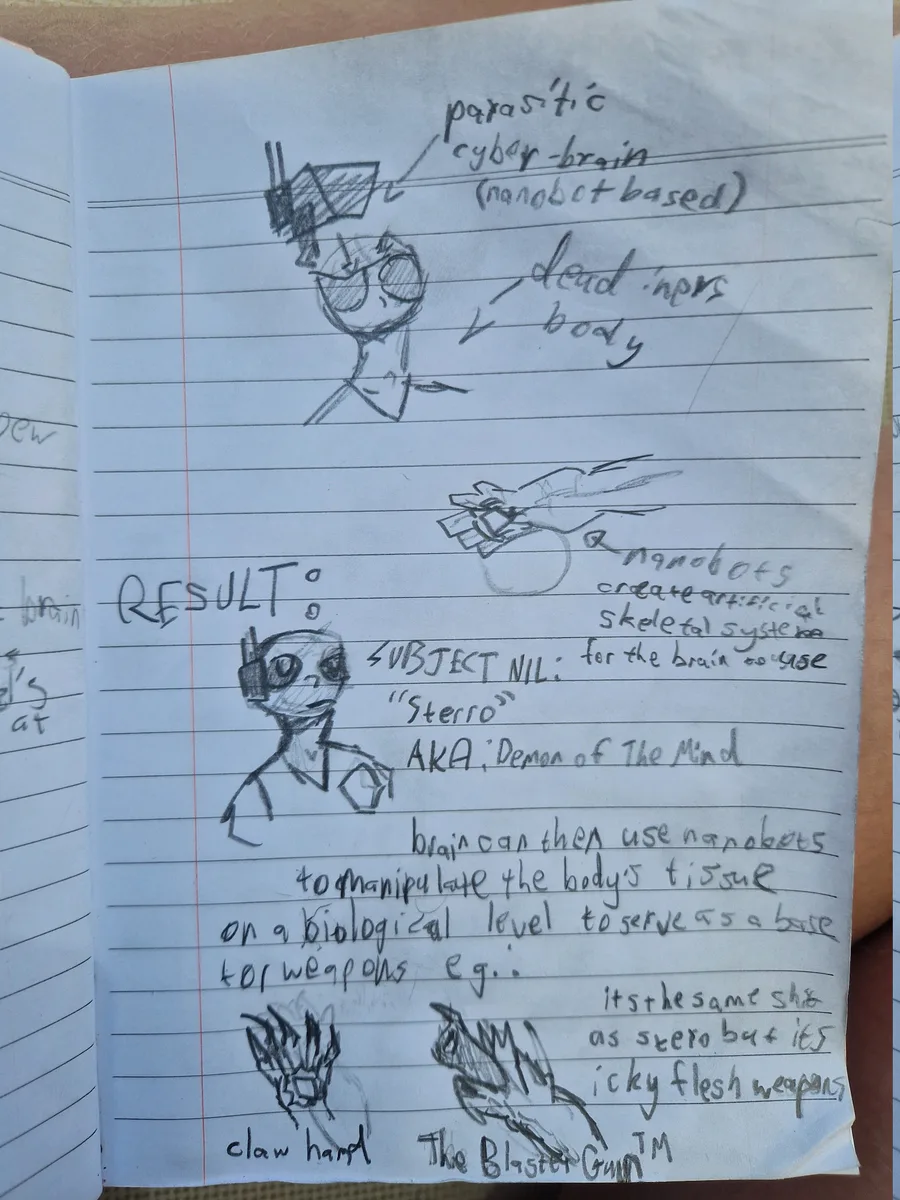 parasitic
cyber-brain
(nanobot based)
dead inprs
body
nanobots
create artificial
skeletal system
for the brain to use
RESULT:
SUBJECT NIL:
"Sterro"
AKA: Demon of The Mind
brain can then use nanobots
to manipulate the body's tissue
on a biological level to serve as a base
for weapons eg..
its the same shit
as stero but its
icky flesh weapons
claw hand
The Blaster Gun™
brain
at